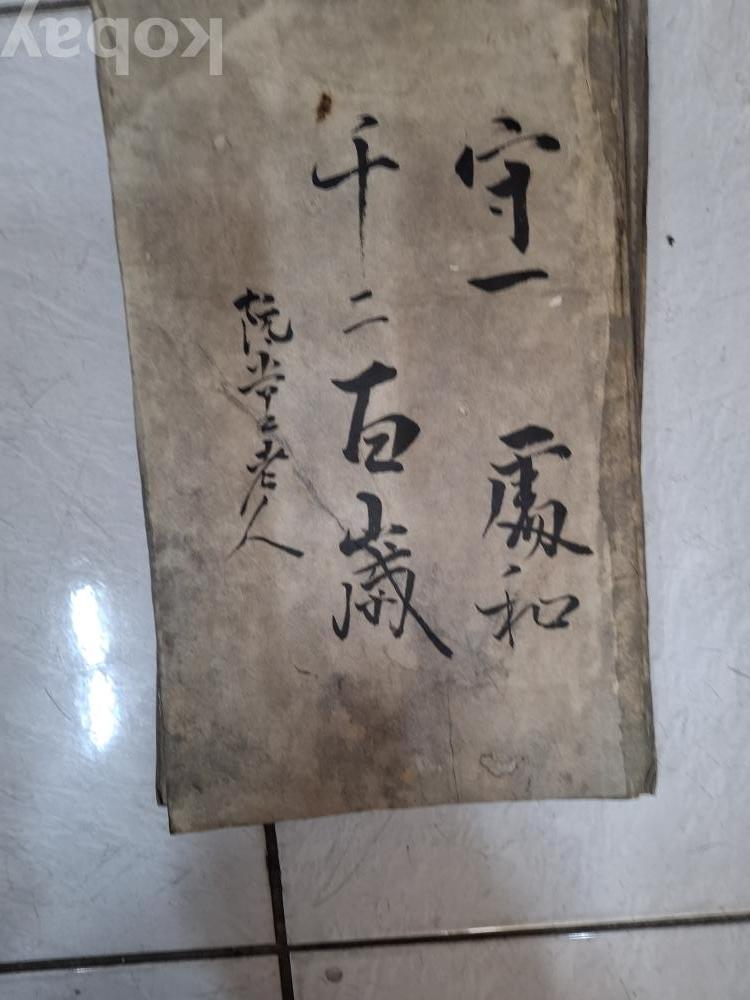 守一 處和
千二百歲
二老人
kobay